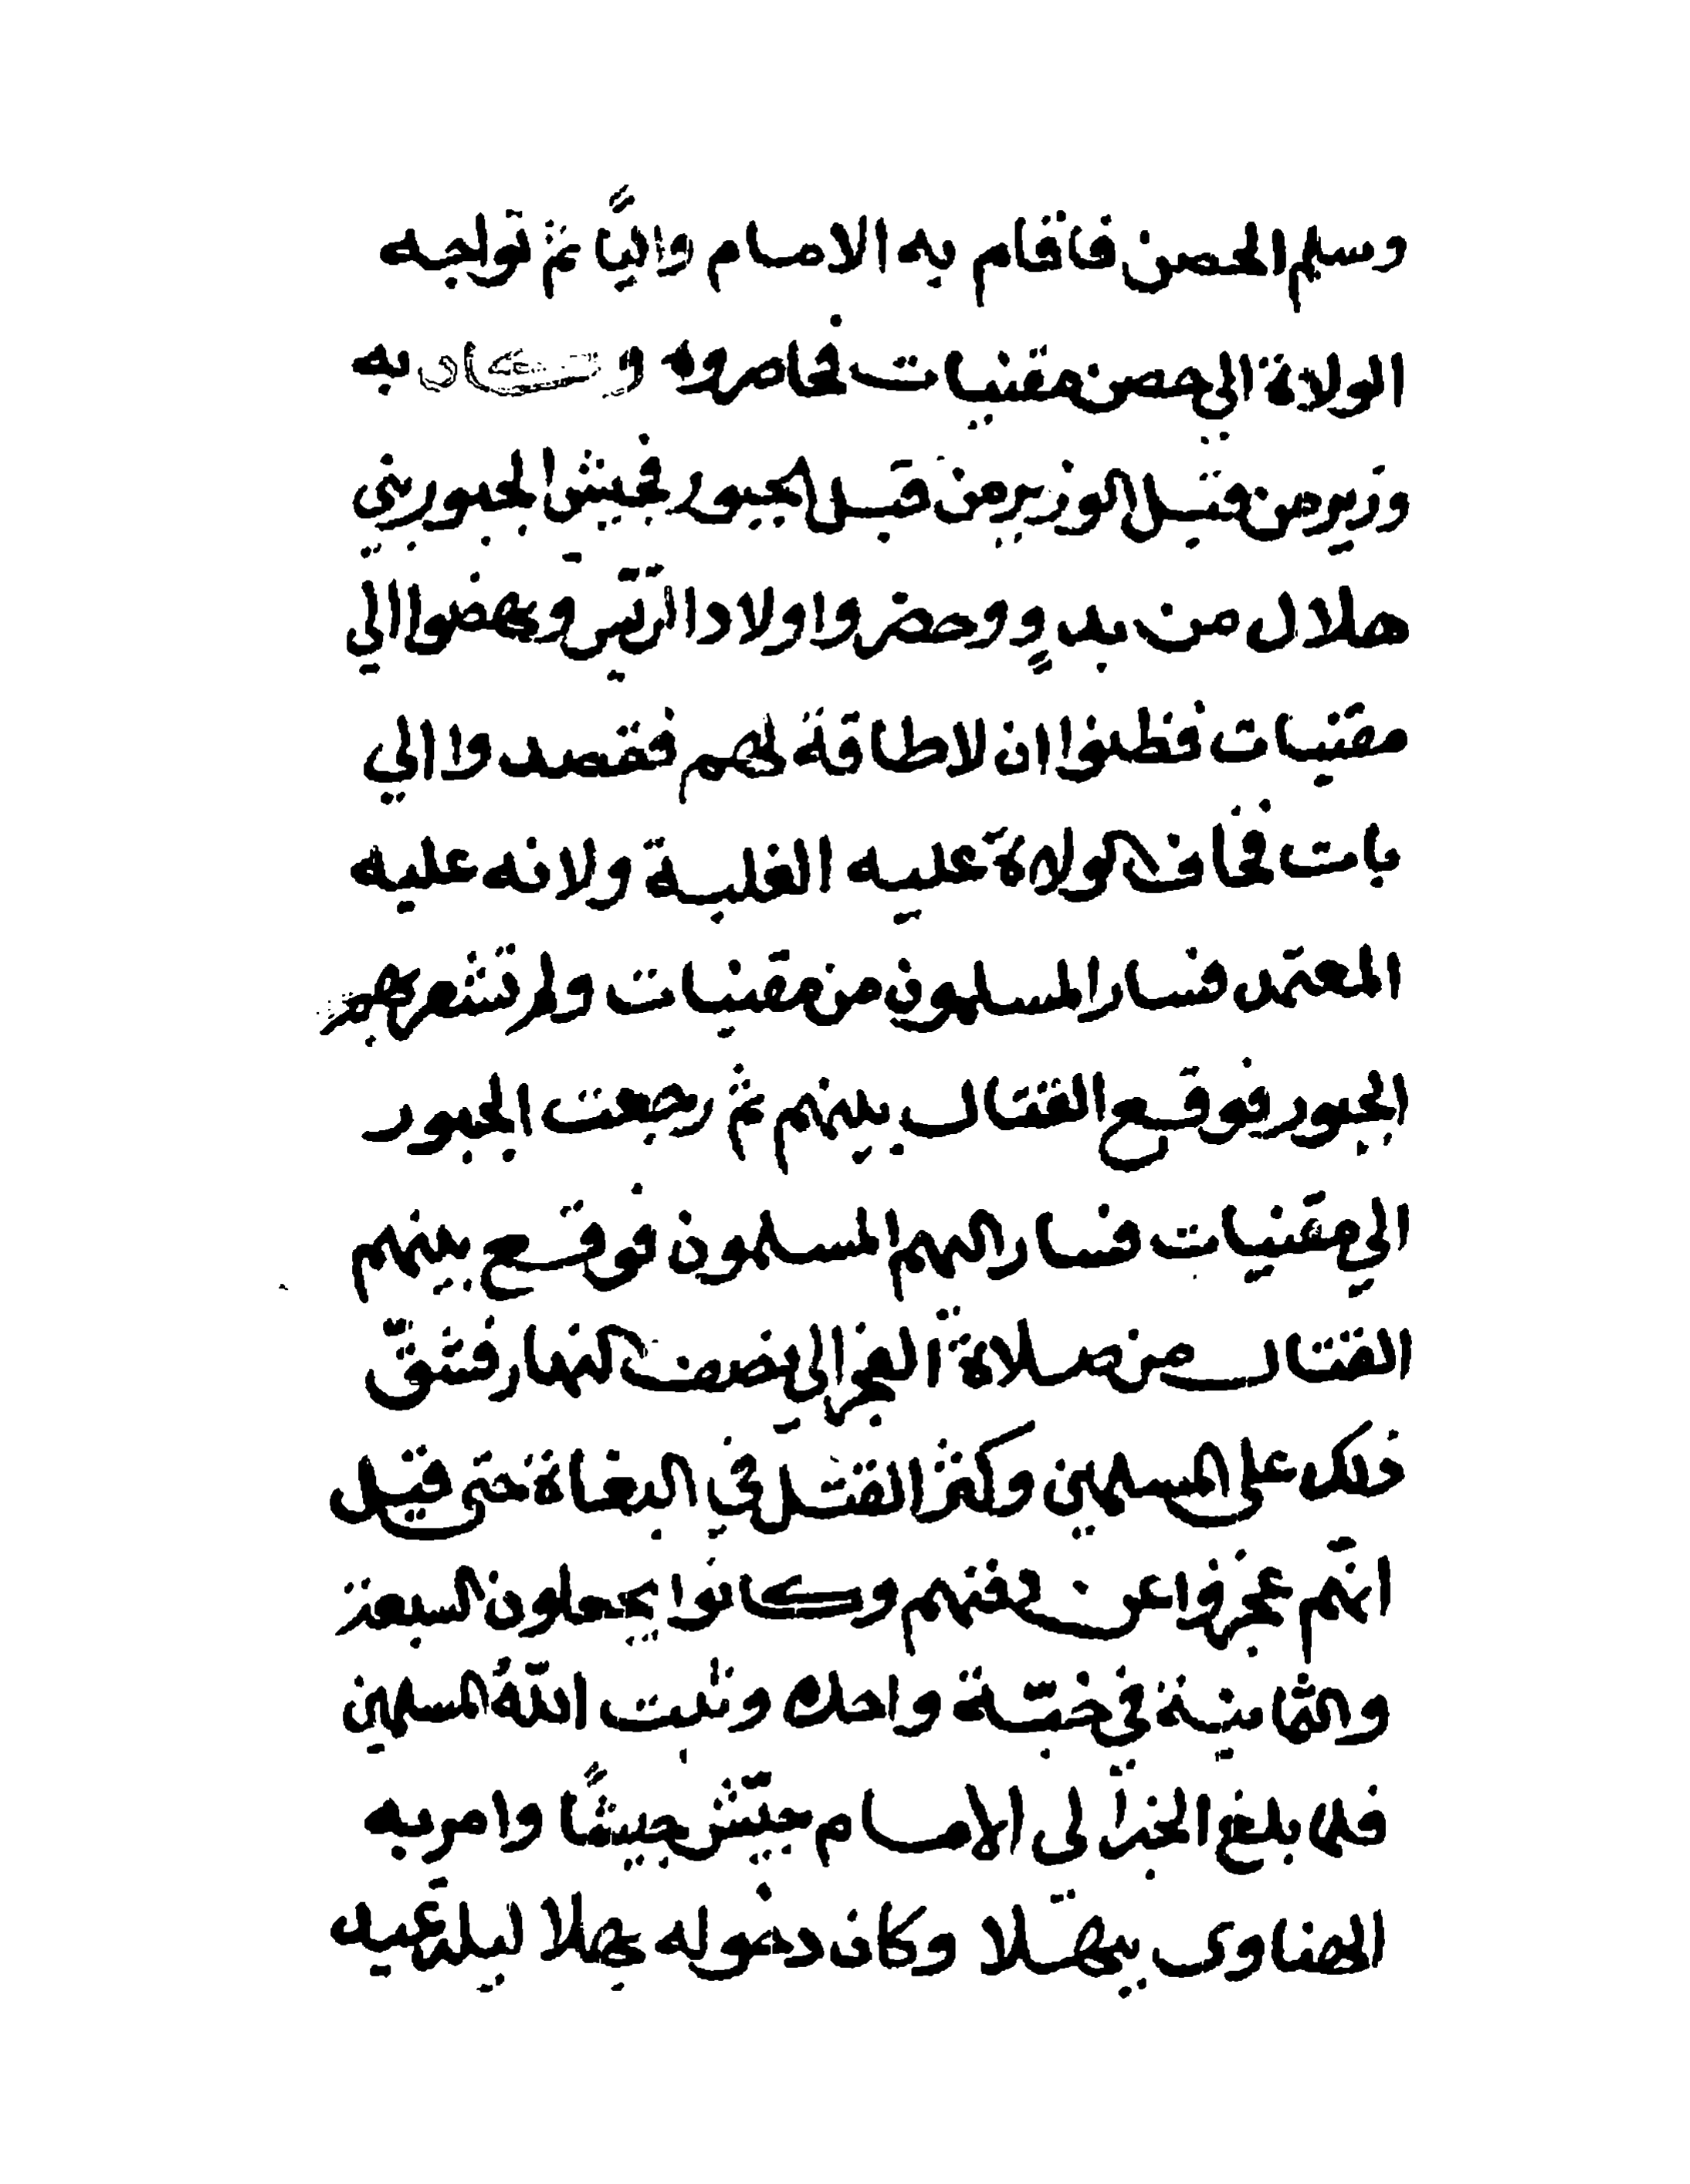 وسلم الحصن فاقام به الامام واليًا ثم تواجه
الولاة الي حصن مقنيات فحاصروه وكان به
وزير من قبل الوزير من قبل الجبور فجيش الجبور بني
هلال من بدوٍ وحضر واولاد الرّيّس ونهضوا الي
مقنيات فظنوا ان لا طاقة لهم فقصدوا الي
بات فخاف الولاة عليه الغلبة ولانه عليه
المعتمد فسار المسلمون من مقنيات ولم تشعر بهم
الجبور فوقع القتال بينهم ثم رجعت الجبور
الي مقنيات فسار اليهم المسلمون فوقع بينهم
القتال من صلاة الفجر الي نصف النهار فشقّ
ذلك على المسلمين وكثر القتل في البغاة حتى قيل
انهم عجزوا عن دفنهم وكانوا يجعلون السبعة
والثمانية في خبّة واحدة وثبت اللّهُ المسلمين
فلما بلغ الخبر الى الامام جيّش جيشًا وامر به
الهناوى ببهلا وكان دخوله بهلا ليلة عيد